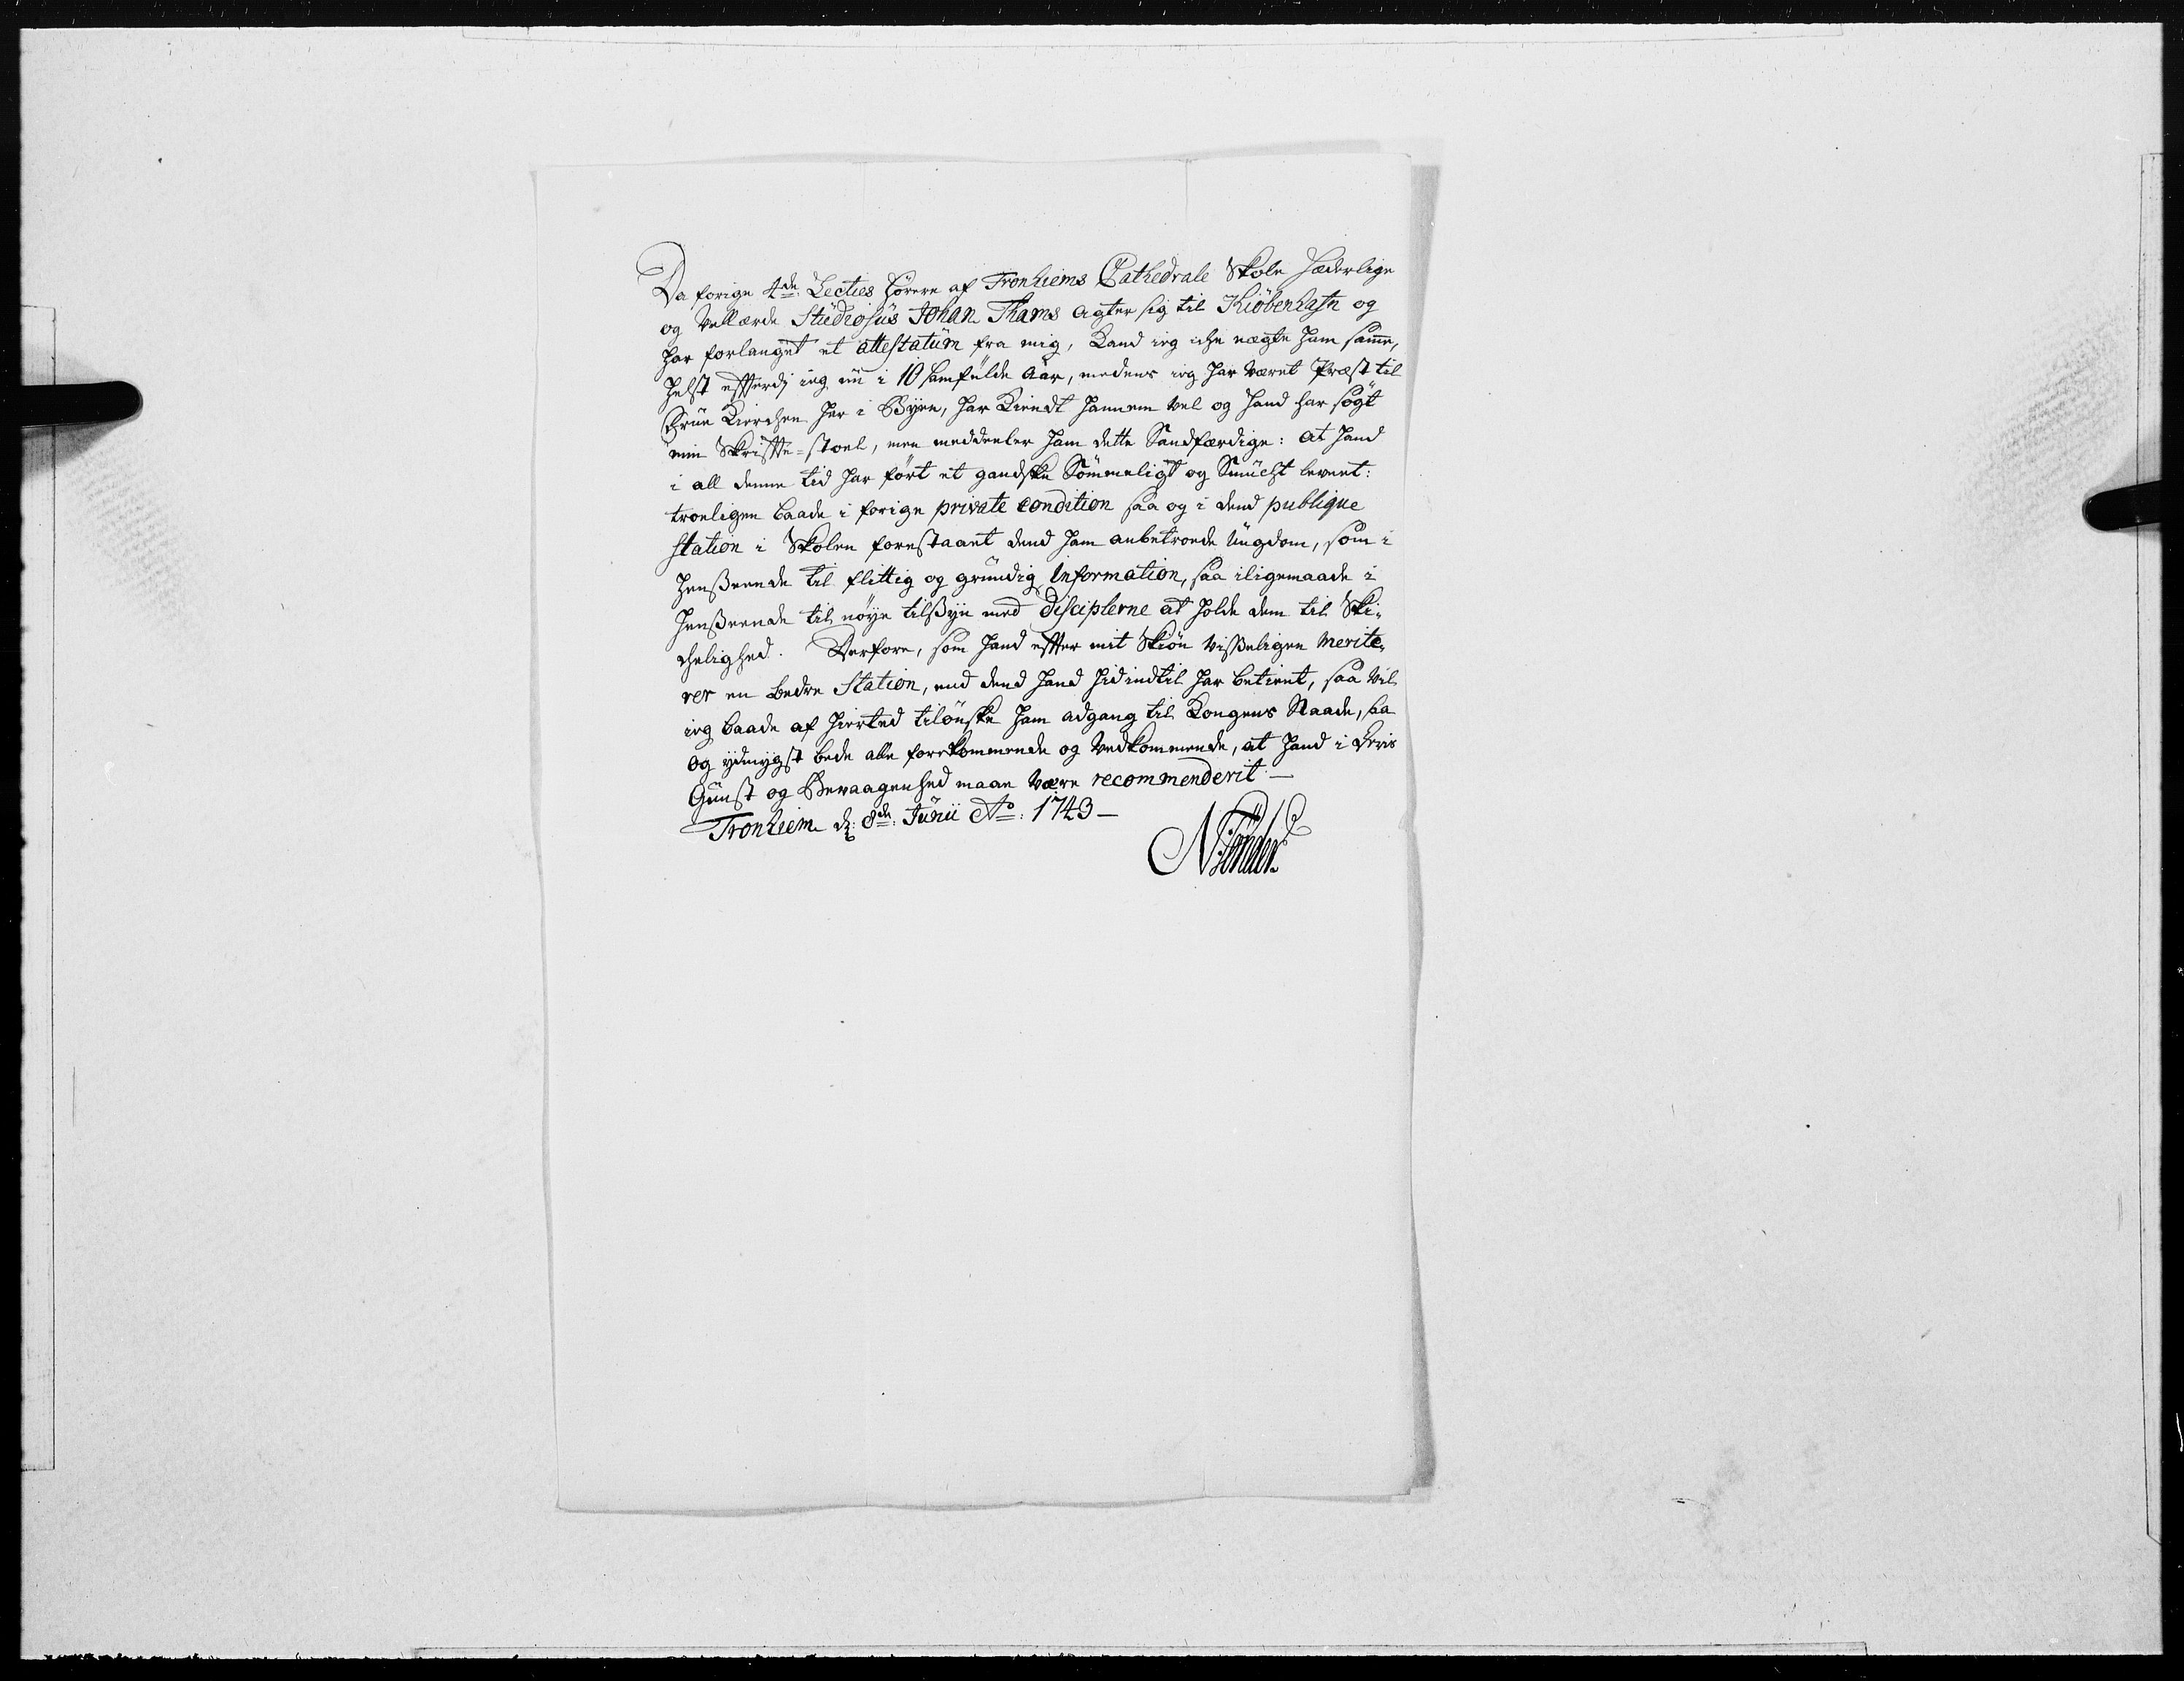 Da forige 4de Lecties Hörere af Tronhiems Cathedrale Skole Hæderlige
og Vellærde Studiosus Johan Thams agter sig til Kiöbenhafn og
har forlanget et attestatum fra mig, Kand ieg iche nægte ham samme,
helst efterdj ieg nu i 10 samfulde Aar, medens ieg har været Præst til
Frue Kierchen her i Byen, har Kiendt hannem vel og hand har sögt
min Skrifte-stoel, men meddeeler ham dette Sandfærdige: at hand
i all denne tid har fört et gandske Sömmeligt og Smucht levnet:
troeligen baade i forige private condition saa og i dend publique
Station i Skolen forestaaet dend ham anbetroede Ungdom, som i
henseende til flittig og grundig Information, saa iligemaade i
henseende til nöye tilsyn med Disciplerne at holde dem til Ski-
chelighed. Derfore, som hand efter mit Skiön visseligen merite-
rer en bedre Station, end dend hand hidindtil har betient, saa vil
ieg baade af Hierted tilönske ham adgang til Kongens Naade, saa
og ydmygst bede alle forekommende og vedkommende, at hand i deris
Gunst og Bevaagenhed maae være recommenderit —
Tronhiem d: 8de Junii Ao: 1743 —
N: Tönder